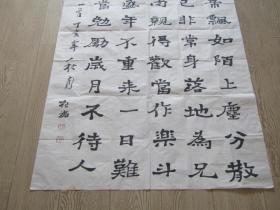 飄如陌上塵分散
已非常身落地為兄
肉親得歡當作樂斗
盛年不重來一日難
當勉勵歲月不待人
丁亥年秋月